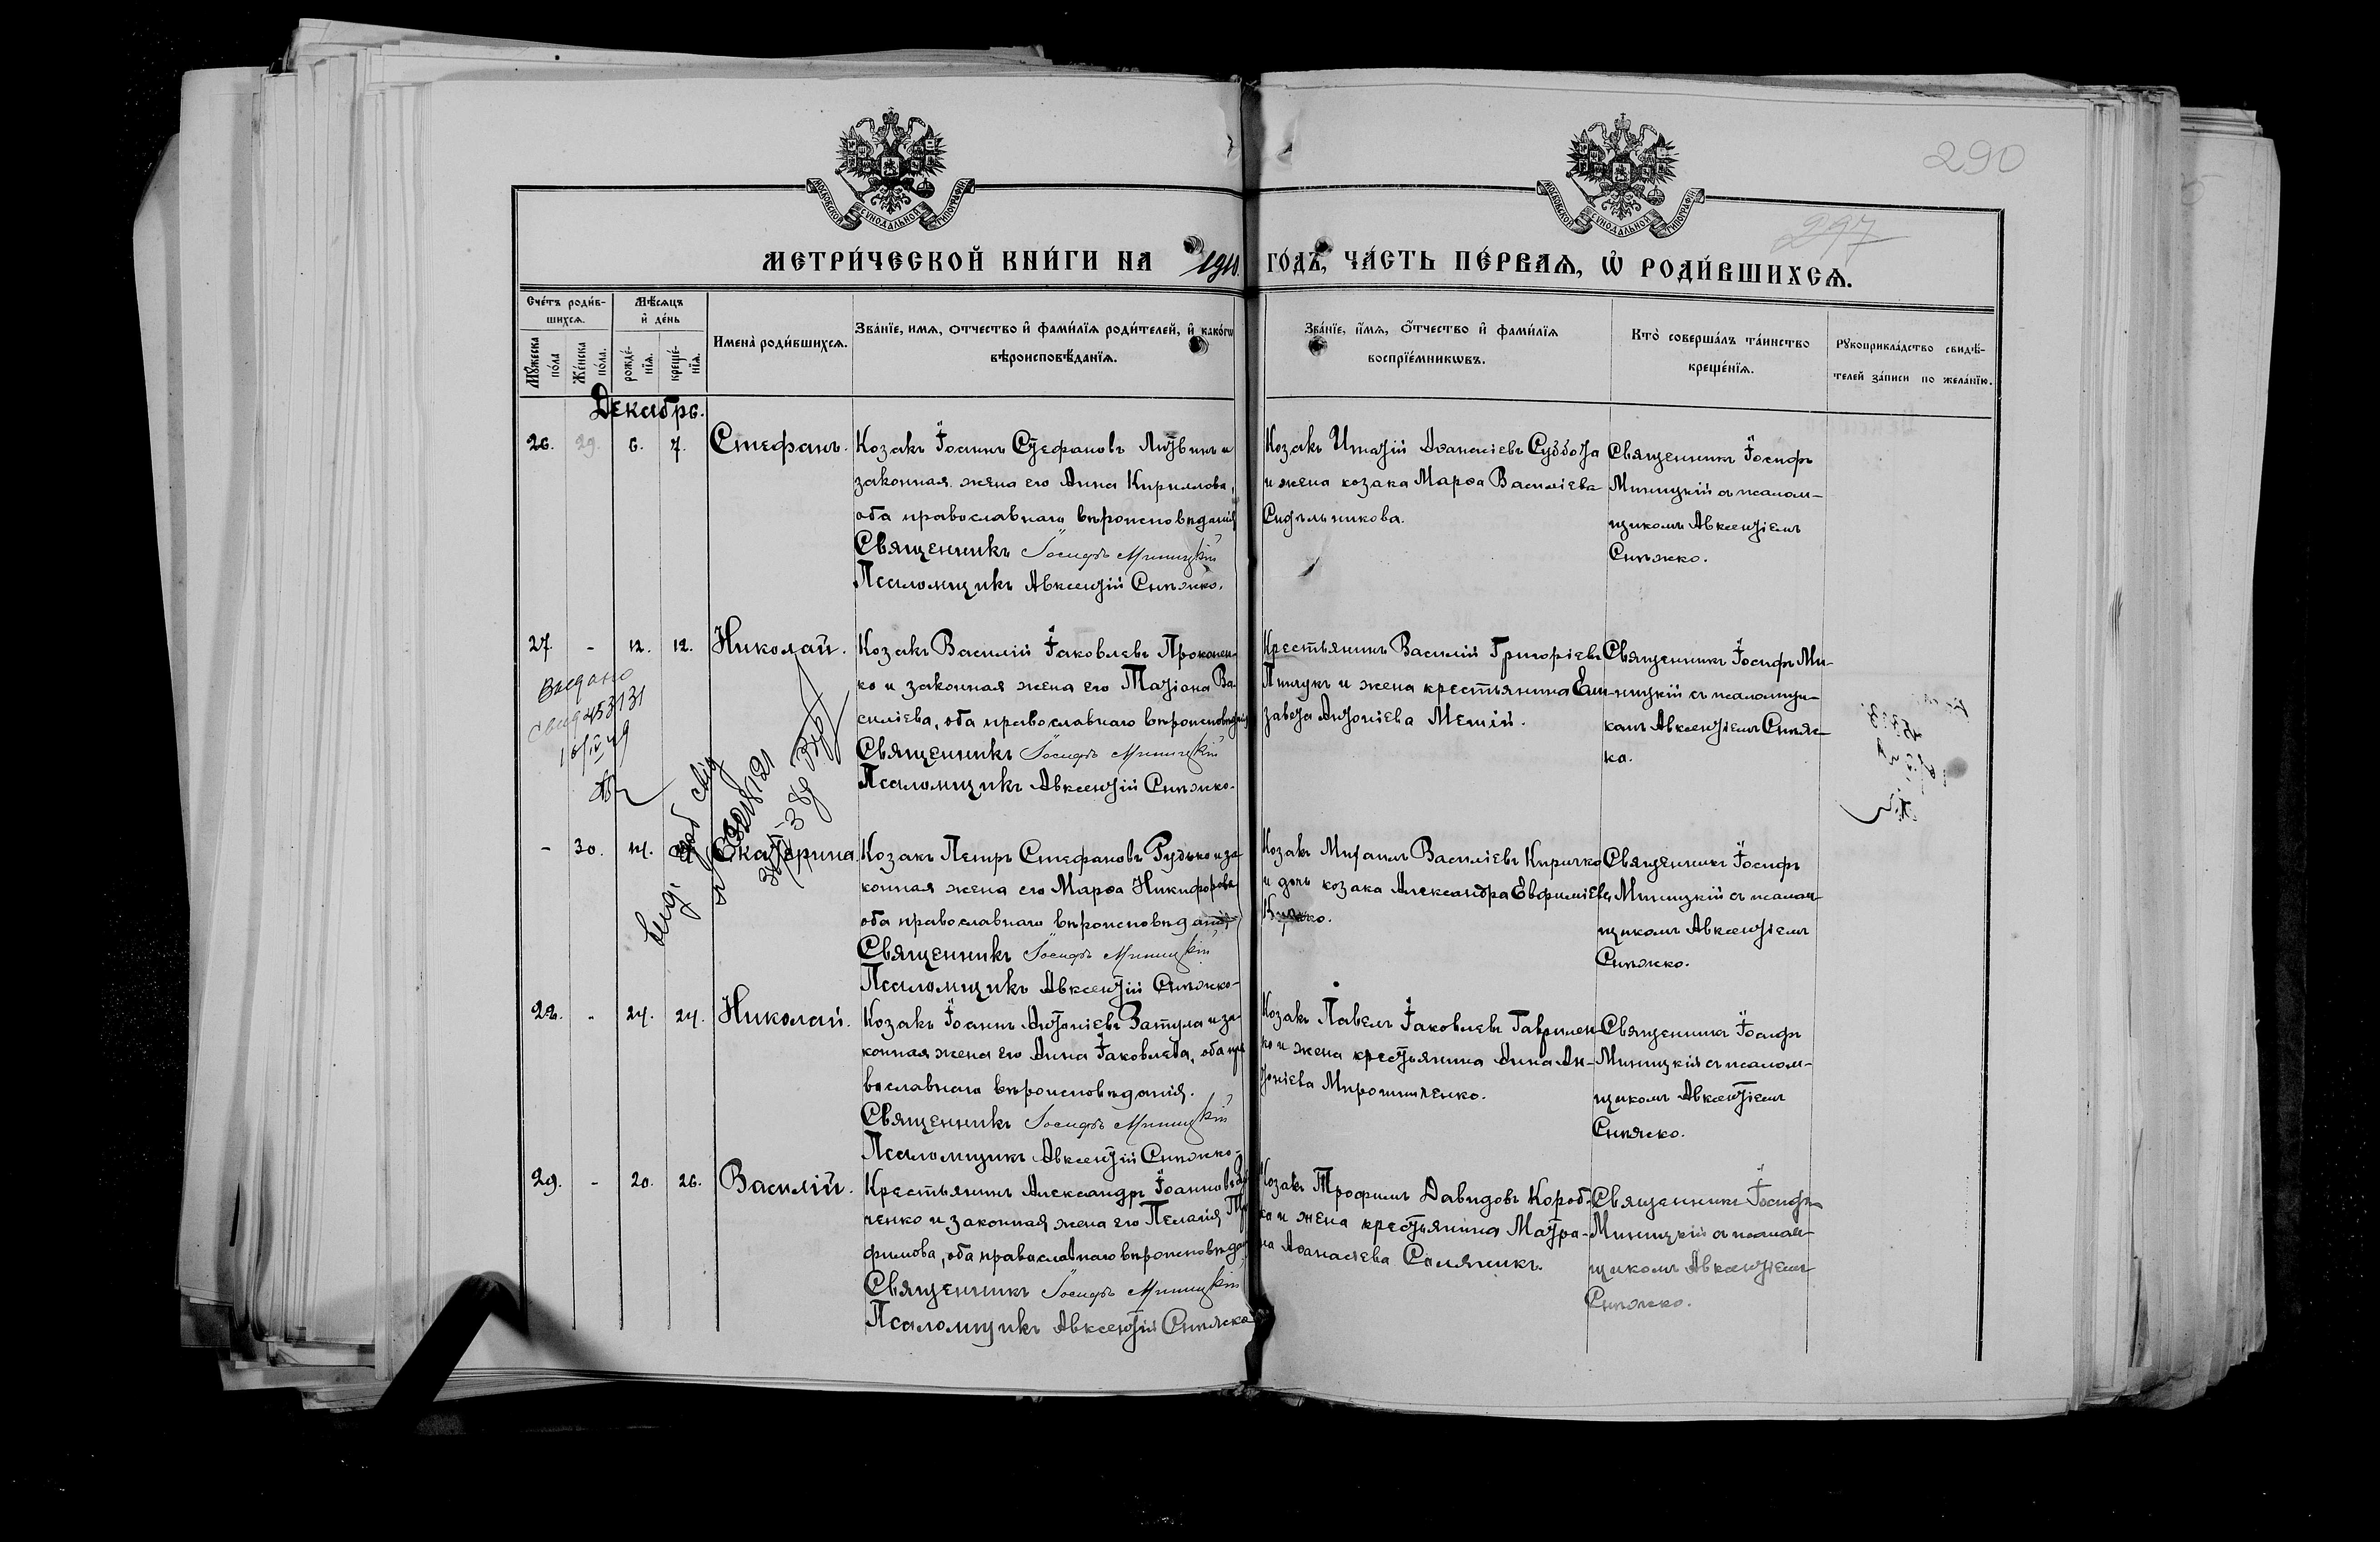 290
297
МОСКОВСКОЙ СѴНОДАЛЬНОЙ ТИПОГРАФІИ
МОСКОВСКОЙ СѴНОДАЛЬНОЙ ТИПОГРАФІИ
МЕТРИ́ЧЕСКОЙ КНИ́ГИ НА 1910 ГО́ДЪ, ЧА́СТЬ ПЕ́РВАѦ, Ѡ҆ РОДИ́ВШИХСѦ.
Сче́тъ роди́в-
шихсѧ.
Мꙋ́жеска по́ла
Же́нска по́ла.
Мѣ́сѧцъ
и҆ де́нь
рожде́-
нїѧ.
креще́-
нїѧ.
Имена̀ роди́вшихсѧ.
Зва́нїе, имѧ, отчество и҆ фами́лїѧ роди́телей, и҆ како́гѡ
вѣроисповѣ́данїѧ.
Зва́нїе, и҆мѧ, о҆́тчество и҆ фами́лїѧ
воспрїе́мникѡвъ.
Кто̀ соверша́лъ та́инство
креще́нїѧ.
Рꙋкоприкла́дство свидѣ́-
телей за́писи по жела́нїю.
Декабрь.
26. 29. 6. 7. Стефанъ.
Козакъ Іоаннъ Стефановъ Литвинъ и
законная жена его Анна Кириллова,
оба православнаго вѣроисповѣданія
Священникъ Іосифъ Миницкій
Псаломщикъ Авксентій Снѣжко.
Козакъ Игнатій Аѳанасіевъ Суббота
и жена козака Марѳа Василіева
Сидѣльникова.
Священникъ Іосифъ
Миницкій съ псалом-
щикомъ Авксентіемъ
Снѣжко.
27. - 12. 12. Николай.
Козакъ Василій Іаковлевъ Прокопен-
ко и законная жена его Татіана Ва-
силіева, оба православнаго вѣроисповѣданія
Священникъ Іосифъ Миницкій
Псаломщикъ Авксентій Снѣжко.
Крестьянинъ Василій Григоріевъ
и жена крестьянина Ели-
завета Антоніева
Священникъ Іосифъ Ми-
ницкій съ псаломщи-
комъ Авксентіемъ Снѣж-
ко.
Видано
16/IV 49
- 30. 14. Екатерина.
Козакъ Петръ Стефановъ Гудько и за-
конная жена его Марѳа Никифорова
оба православнаго вѣроисповѣданія
Священникъ Іосифъ Миницкій
Псаломщикъ Авксентій Снѣжко.
Козакъ Михаилъ Василіевъ Киричко
и дочь козака Александра Евфиміева
Священникъ Іосифъ
Миницкій съ псалом-
щикомъ Авксентіемъ
Снѣжко.
28. - 24. 24. Николай.
Козакъ Іоаннъ Антоніевъ Затула и за-
конная жена его Анна Іаковлева, оба пра-
вославнаго вѣроисповѣданія.
Священникъ Іосифъ Миницкій
Псаломщикъ Авксентій Снѣжко.
Козакъ Павелъ Іаковлевъ Гаврилен-
ко и жена крестьянина Анна Ан-
тоніева Мирошниченко.
Священникъ Іосифъ
Миницкій съ псалом-
щикомъ Авксентіемъ
Снѣжко.
29. - 20. 26. Василій.
Крестьянинъ Александръ Іоанновъ
ченко и законная жена его Пелагія Тро-
фимова, оба православнаго вѣроисповѣданія
Священникъ Іосифъ Миницкій
Псаломщикъ Авксентій Снѣжко
Козакъ Трофимъ Давидовъ Короб-
ка и жена крестьянина Матро-
на Аѳанасіева Саляникъ.
Священникъ Іосифъ
Миницкій съ псалом-
щикомъ Авксентіемъ
Снѣжко.